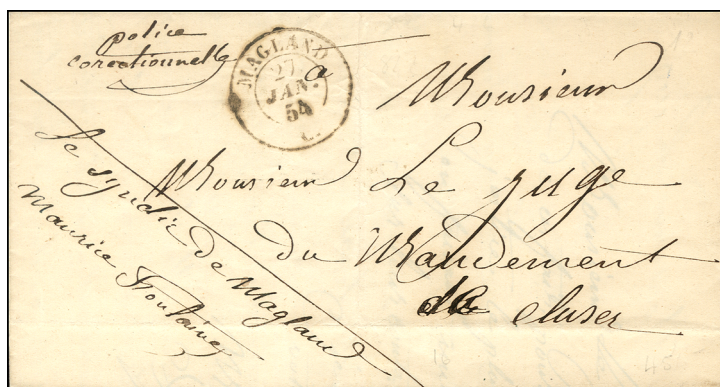 police
correctionnelle
MAGLAND
27
JAN.
54
C.
à
Monsieur
Monsieur Le juge
du Mandement
de Cluses
Le syndic de Magland
Maurice Fontaine